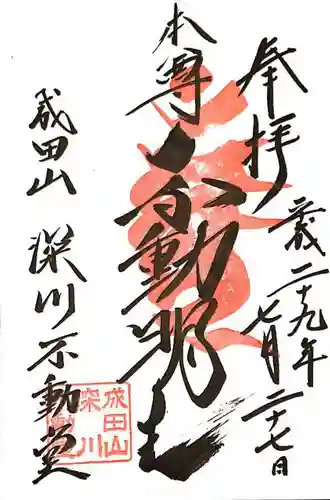 奉拝
平成二十九年七月二十七日
本尊
不動明王
成田山 深川不動堂
成田山
深川